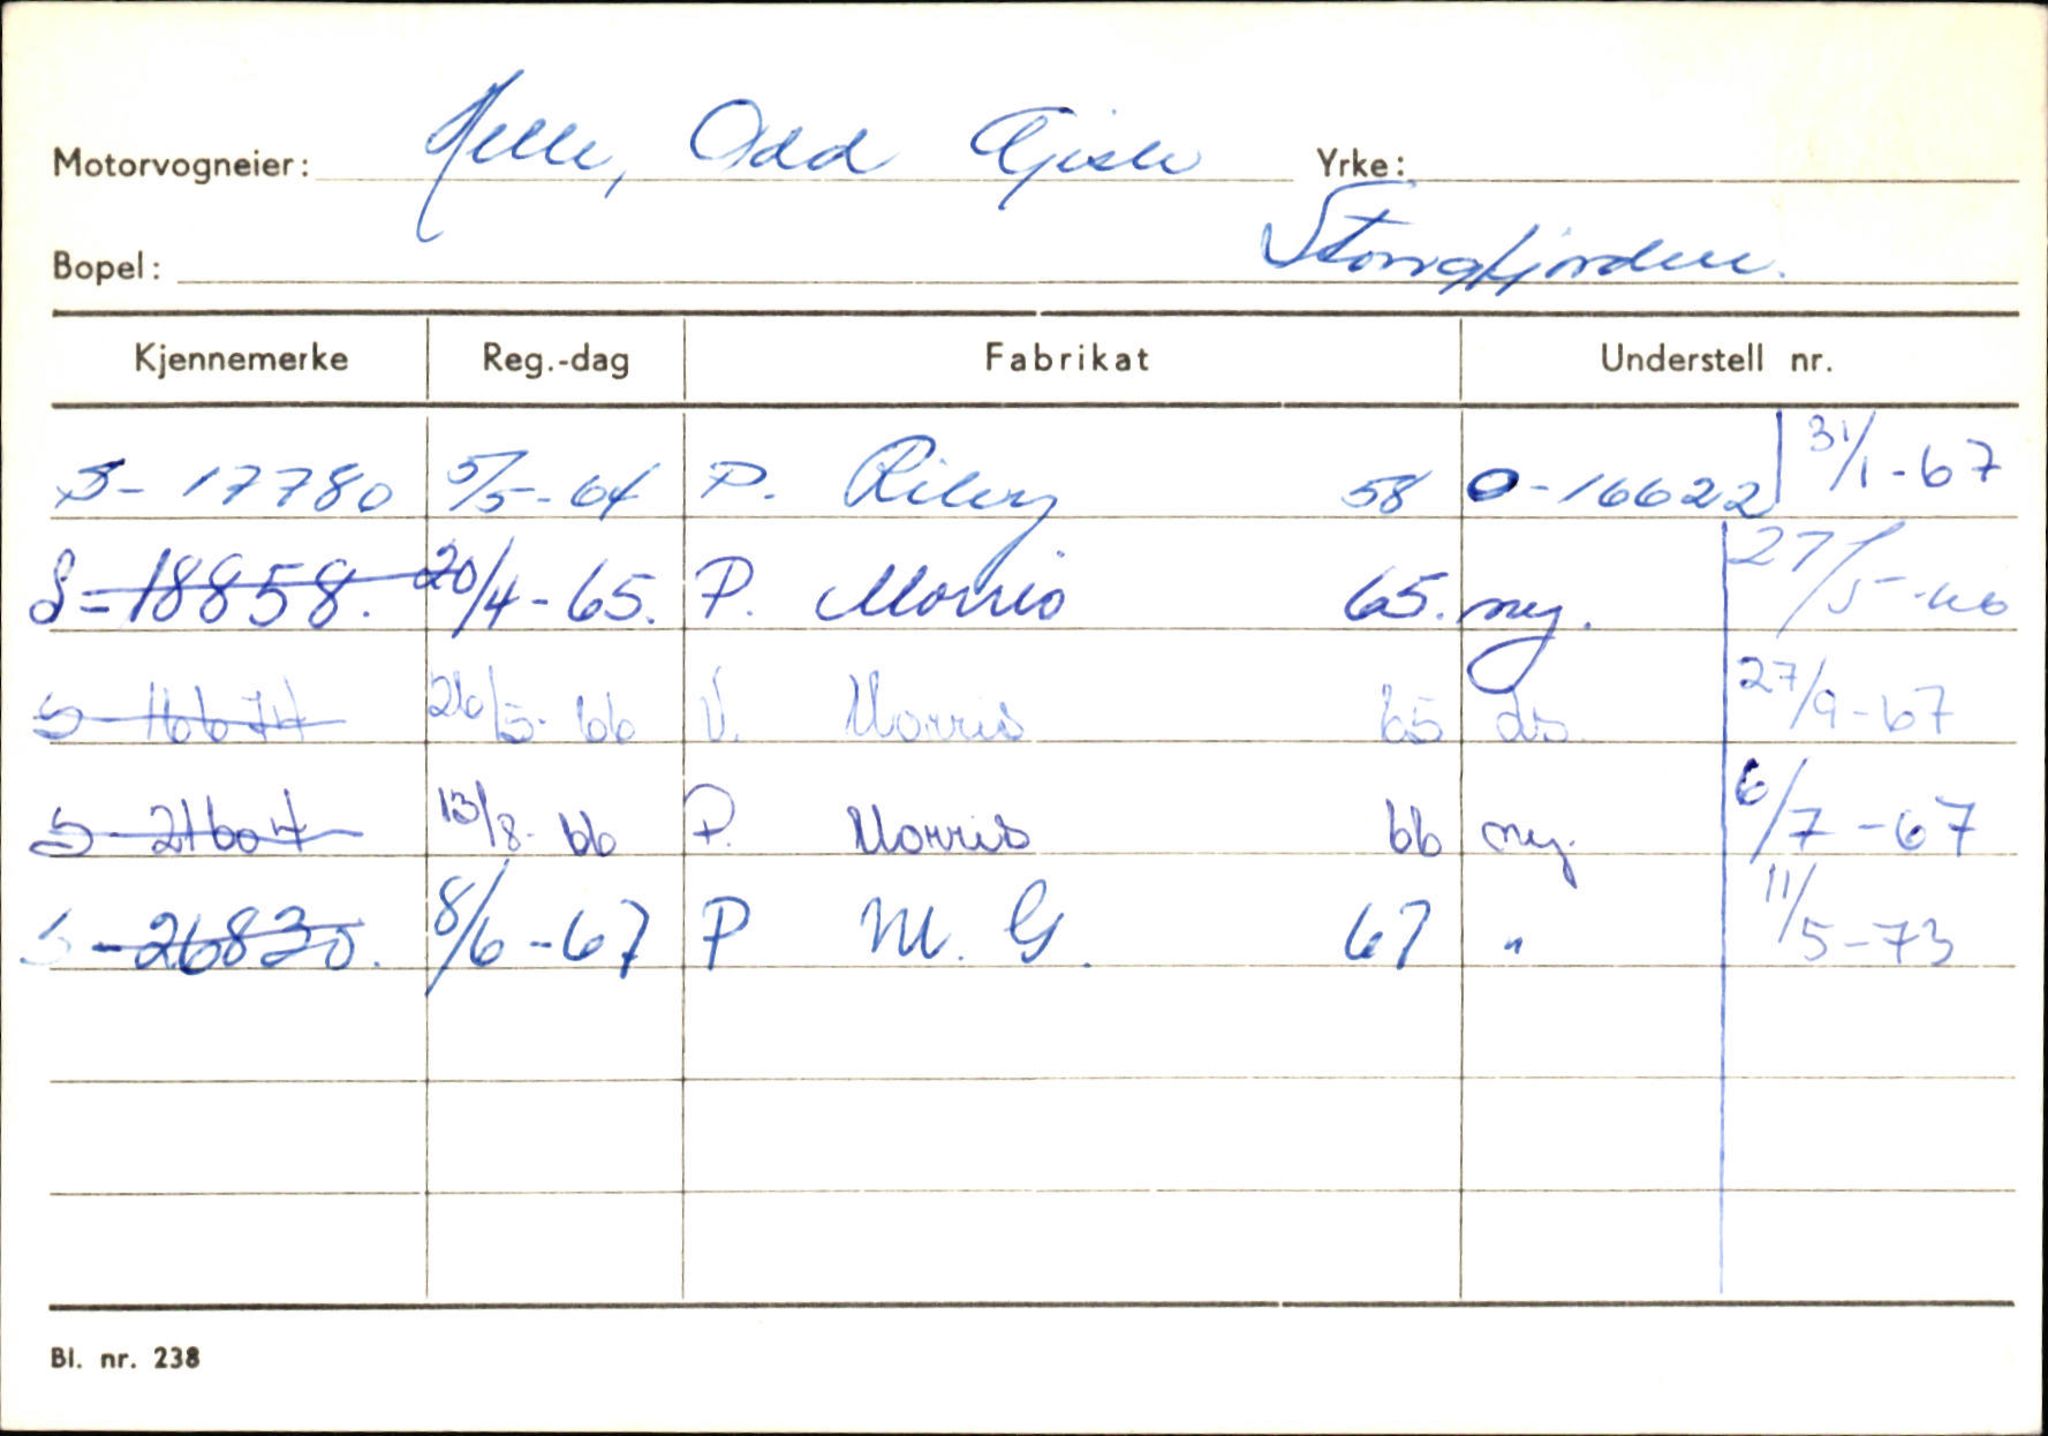 Motorvogneier: Helle, Odd Gisle Yrke:
Bopel: Stongfjorden.
Kjennemerke Reg.-dag Fabrikat Understell nr.
S- 17780 5/5-64 P. Riley 58 O-16622 31/1-67
S-18858. 20/4-65. P. Morris 65. ny. 27/5-66
S-16674 26/5-66 V. Morris 65 ds. 27/9-67
S-21607 13/8-66 P. Morris 66 ny. 6/7-67
S-26830. 8/6-67 P M.G. 67 " 11/5-73
Bl. nr. 238